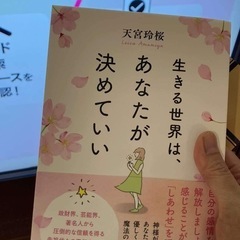 天宮玲桜
Leira Amamiya
生きる世界は、
あなたが
決めていい
自分の感情
解放しまし
感じることが
「しあわせ」を
神様が
あなた
優しく
魔法の
政財界、芸能界、
著名人から
圧倒的な信頼を得る
ド
ースを
認!